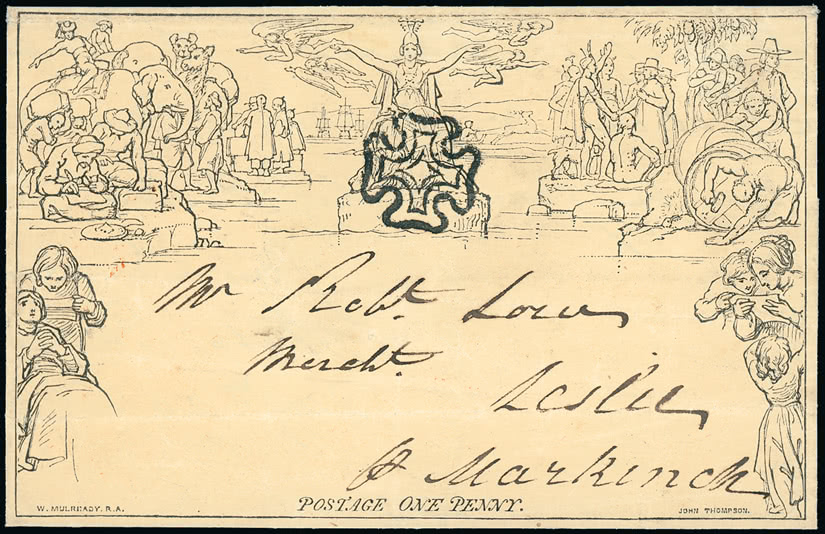 Mr Robt. Lowe
Mercht.
Leslie
by Markinch
POSTAGE ONE PENNY.
W. MULREADY. R.A.
JOHN THOMPSON.